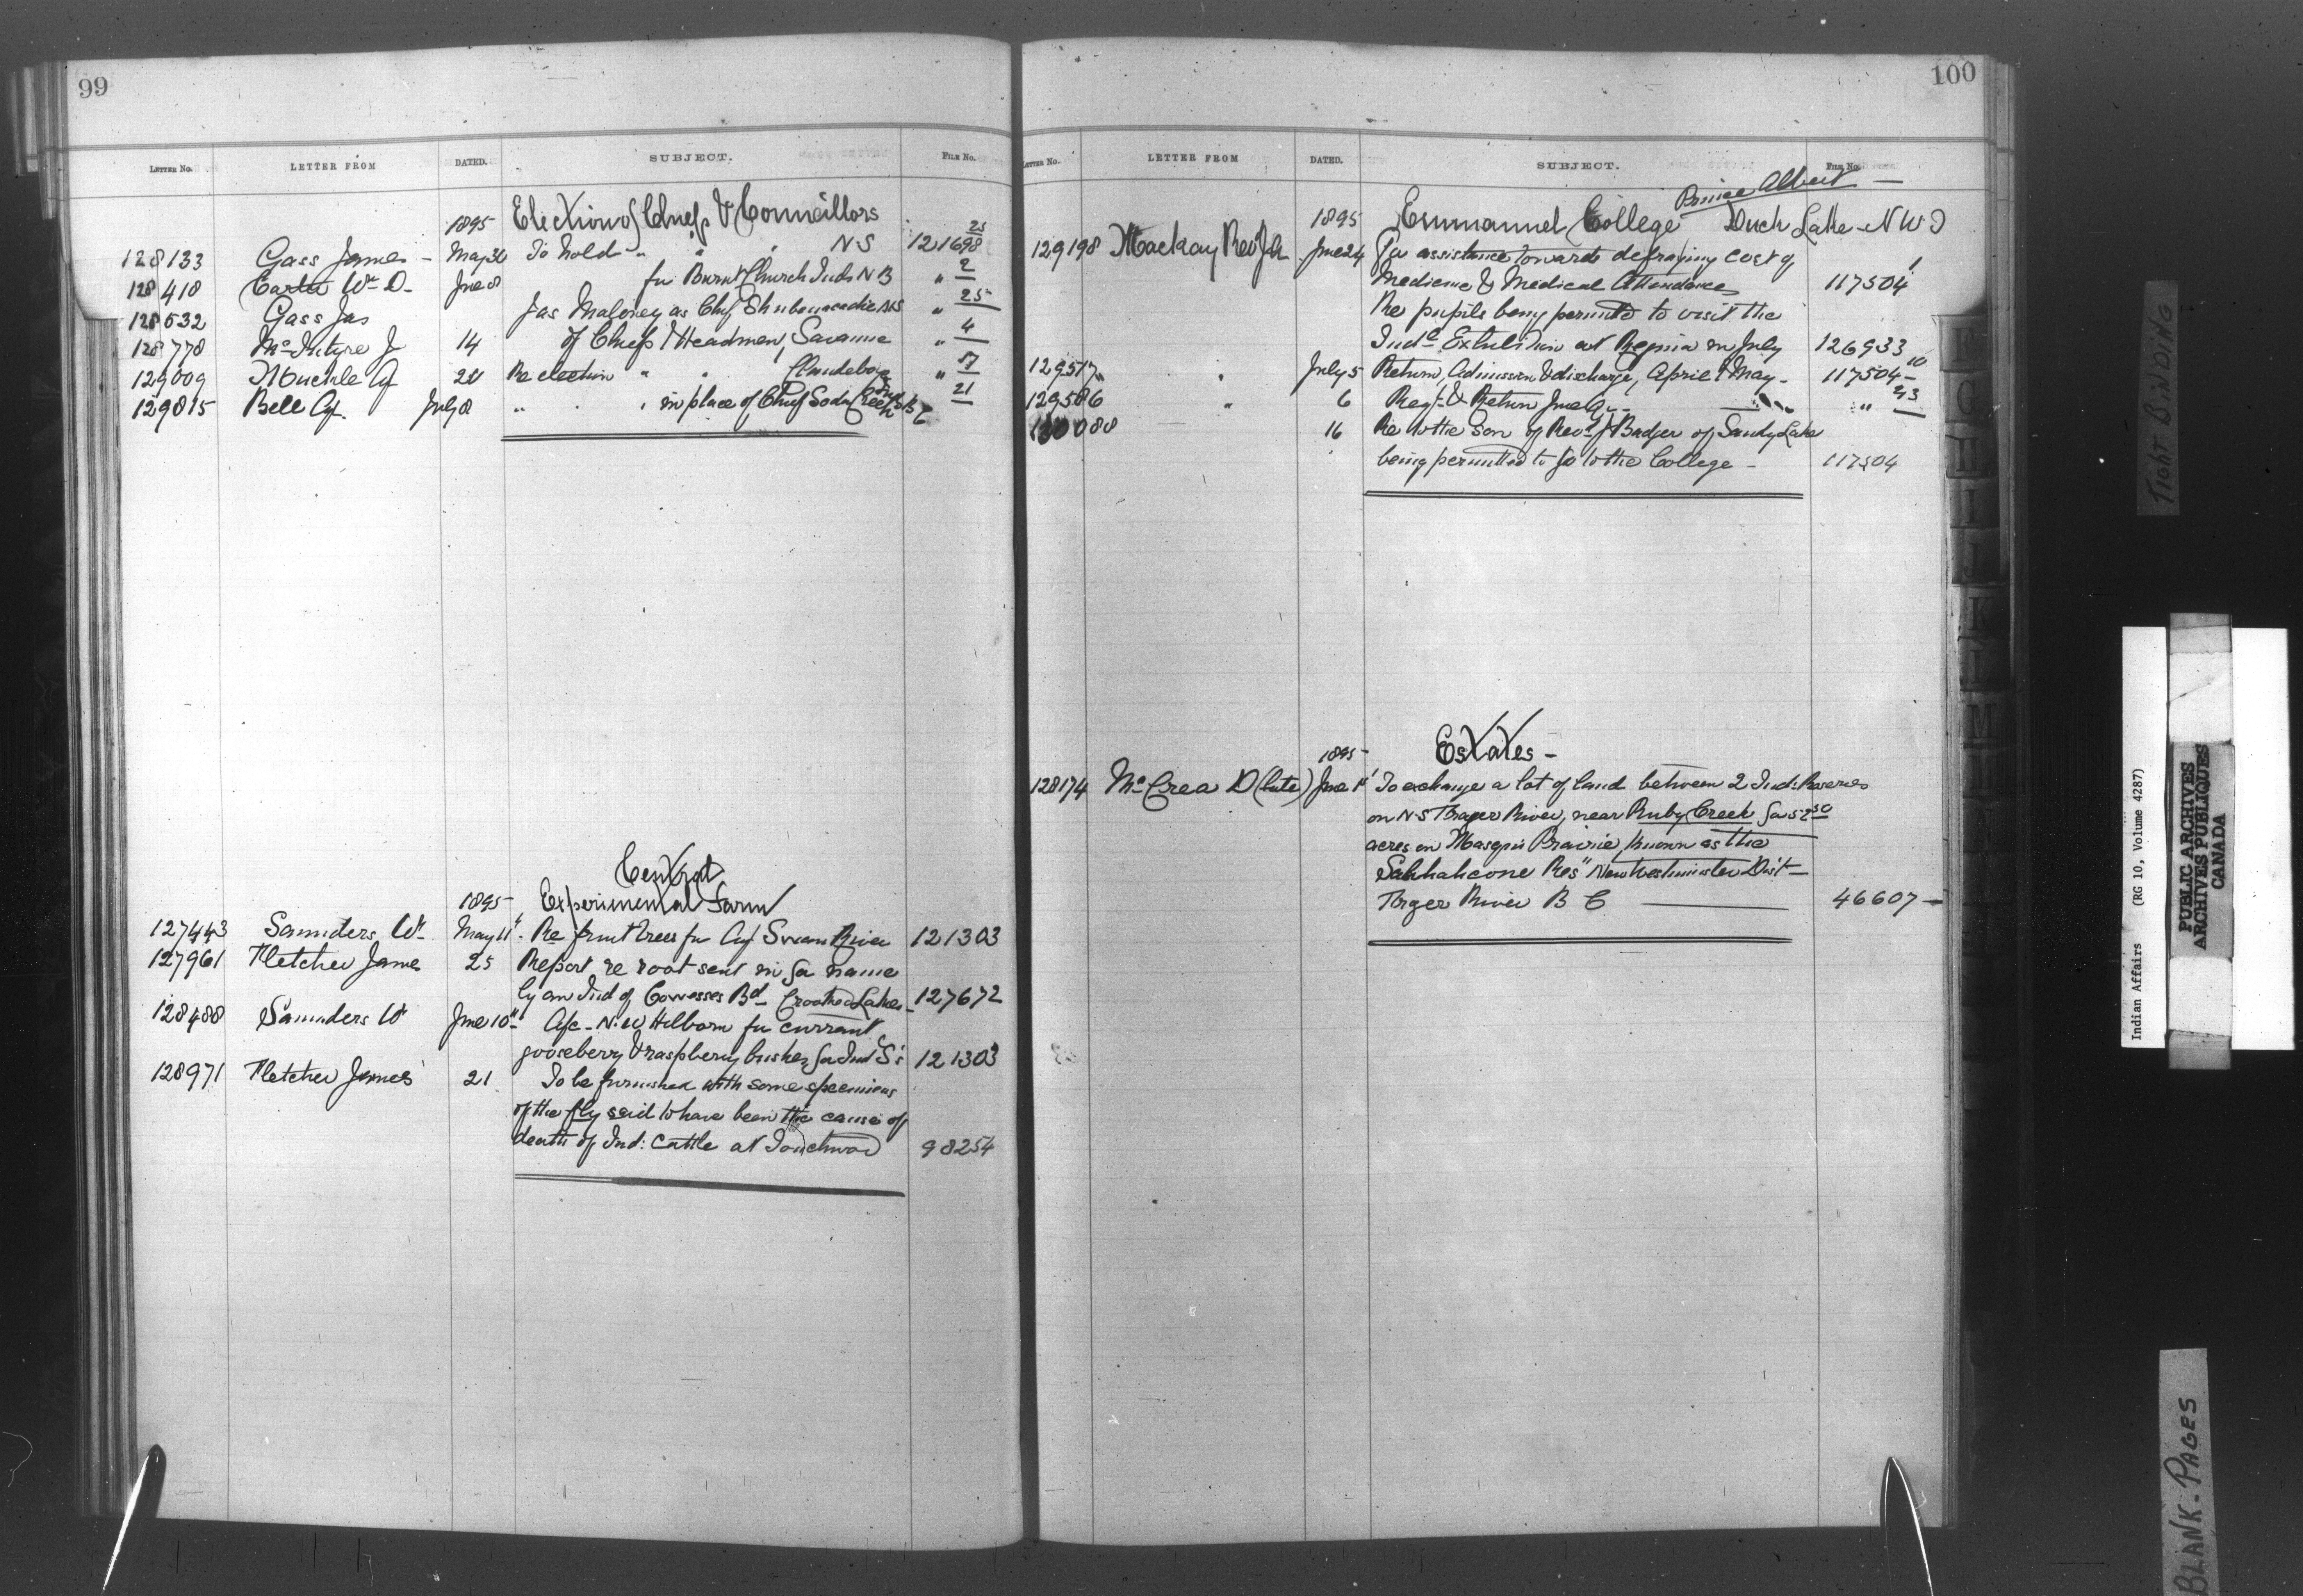 99
LETTER No. LETTER FROM DATED. SUBJECT. FILE No.
1895 Election of Chiefs & Councillors
128133 Gass James - May 31 To hold " " " N S 121698 25
128418 Carter Wm D. June 8 for Burnt Church Inds N B " 2
128632 Gass Jas Jas Maloney as Chf Shubenacadie NS " 25
128778 McIntyre J 14 of Chiefs & Headmen, Savanne " 4
129009 Muckle A 24 Re election " " Clandeboye " 17
129815 Bell July 8 " " " in place of Chief Soda Creek B C 21
Central
1895 Experimental Farm
127443 Saunders W May 11 Re fruit trees for Swan River 121303
127961 Fletcher James 25 Report re root sent in for name
by an Ind of Cowesses Bd Crooked Lakes 127672
128488 Saunders W June 10 Afc - N. W Hilborn for currant
gooseberry & raspberry bushes for Ind S's 121303
128971 Fletcher James 21 To be furnished with some specimens
of the fly said to have been the cause of
death of Ind: Cattle at Touchwood 98254
100
LETTER No. LETTER FROM DATED. SUBJECT. FILE No.
Prince Albert
1895 Emmanuel College Duck Lake - N W T
129198 Mackay Rev J A June 24 For assistance towards defraying cost of
Medicine & Medical Attendance 117504 1
Re pupils being permitted to visit the
Indl Exhibition at Regina in July 126933
129517 " July 5 Return, Admission & discharge, April & May - 117504 10
129586 " 6 Regr & Return June Qr - " 23
130088 16 Re to the son of Revd J Badger of Sandy Lake
being permitted to go to the College - 117504
1895 - Estates -
128174 McCrea D (late) June 1 To exchange a lot of land between 2 Ind: Reserves
on N S Frazer River, near Ruby Creek for 52 50
acres on Masqui Prairie, known as the
Sahhahcone Res" New Westminster Dist -
Frazer River B C 46607 -
TIGHT BINDING
Indian Affairs (RG 10, Volume 4287)
PUBLIC ARCHIVES
ARCHIVES PUBLIQUES
CANADA
BLANK - PAGES